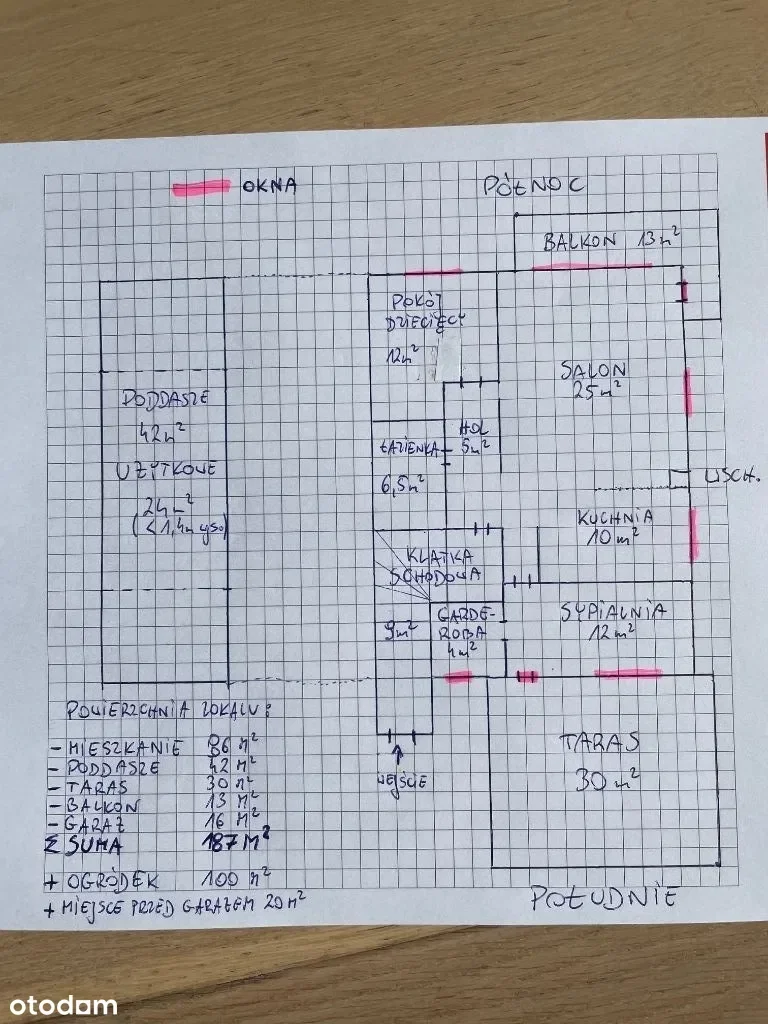 OKNA
PÓŁNOC
BALKON 13m²
POKÓJ
DZIECIĘCY
12m²
SALON
25m²
PODDASZE
42m²
UŻYTKOWE
24m²
HOL
5m²
ŁAZIENKA
6,5m²
USCH.
KUCHNIA
10m²
KLATKA
SCHODOWA
9m²
GARDE-
ROBA
4m²
SYPIALNIA
12m²
POWIERZCHNIA LOKALU:
- MIESZKANIE 86 m²
- PODDASZE 42 m²
- TARAS 30 m²
- BALKON 13 m²
- GARAŻ 16 m²
Σ SUMA 187 M²
+ OGRÓDEK 100 m²
+ MIEJSCE PRZED GARAŻEM 20 m²
WEJŚCIE
TARAS
30m²
POŁUDNIE
otodom